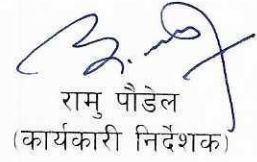 रामु पौडेल
(कार्यकारी निर्देशक)